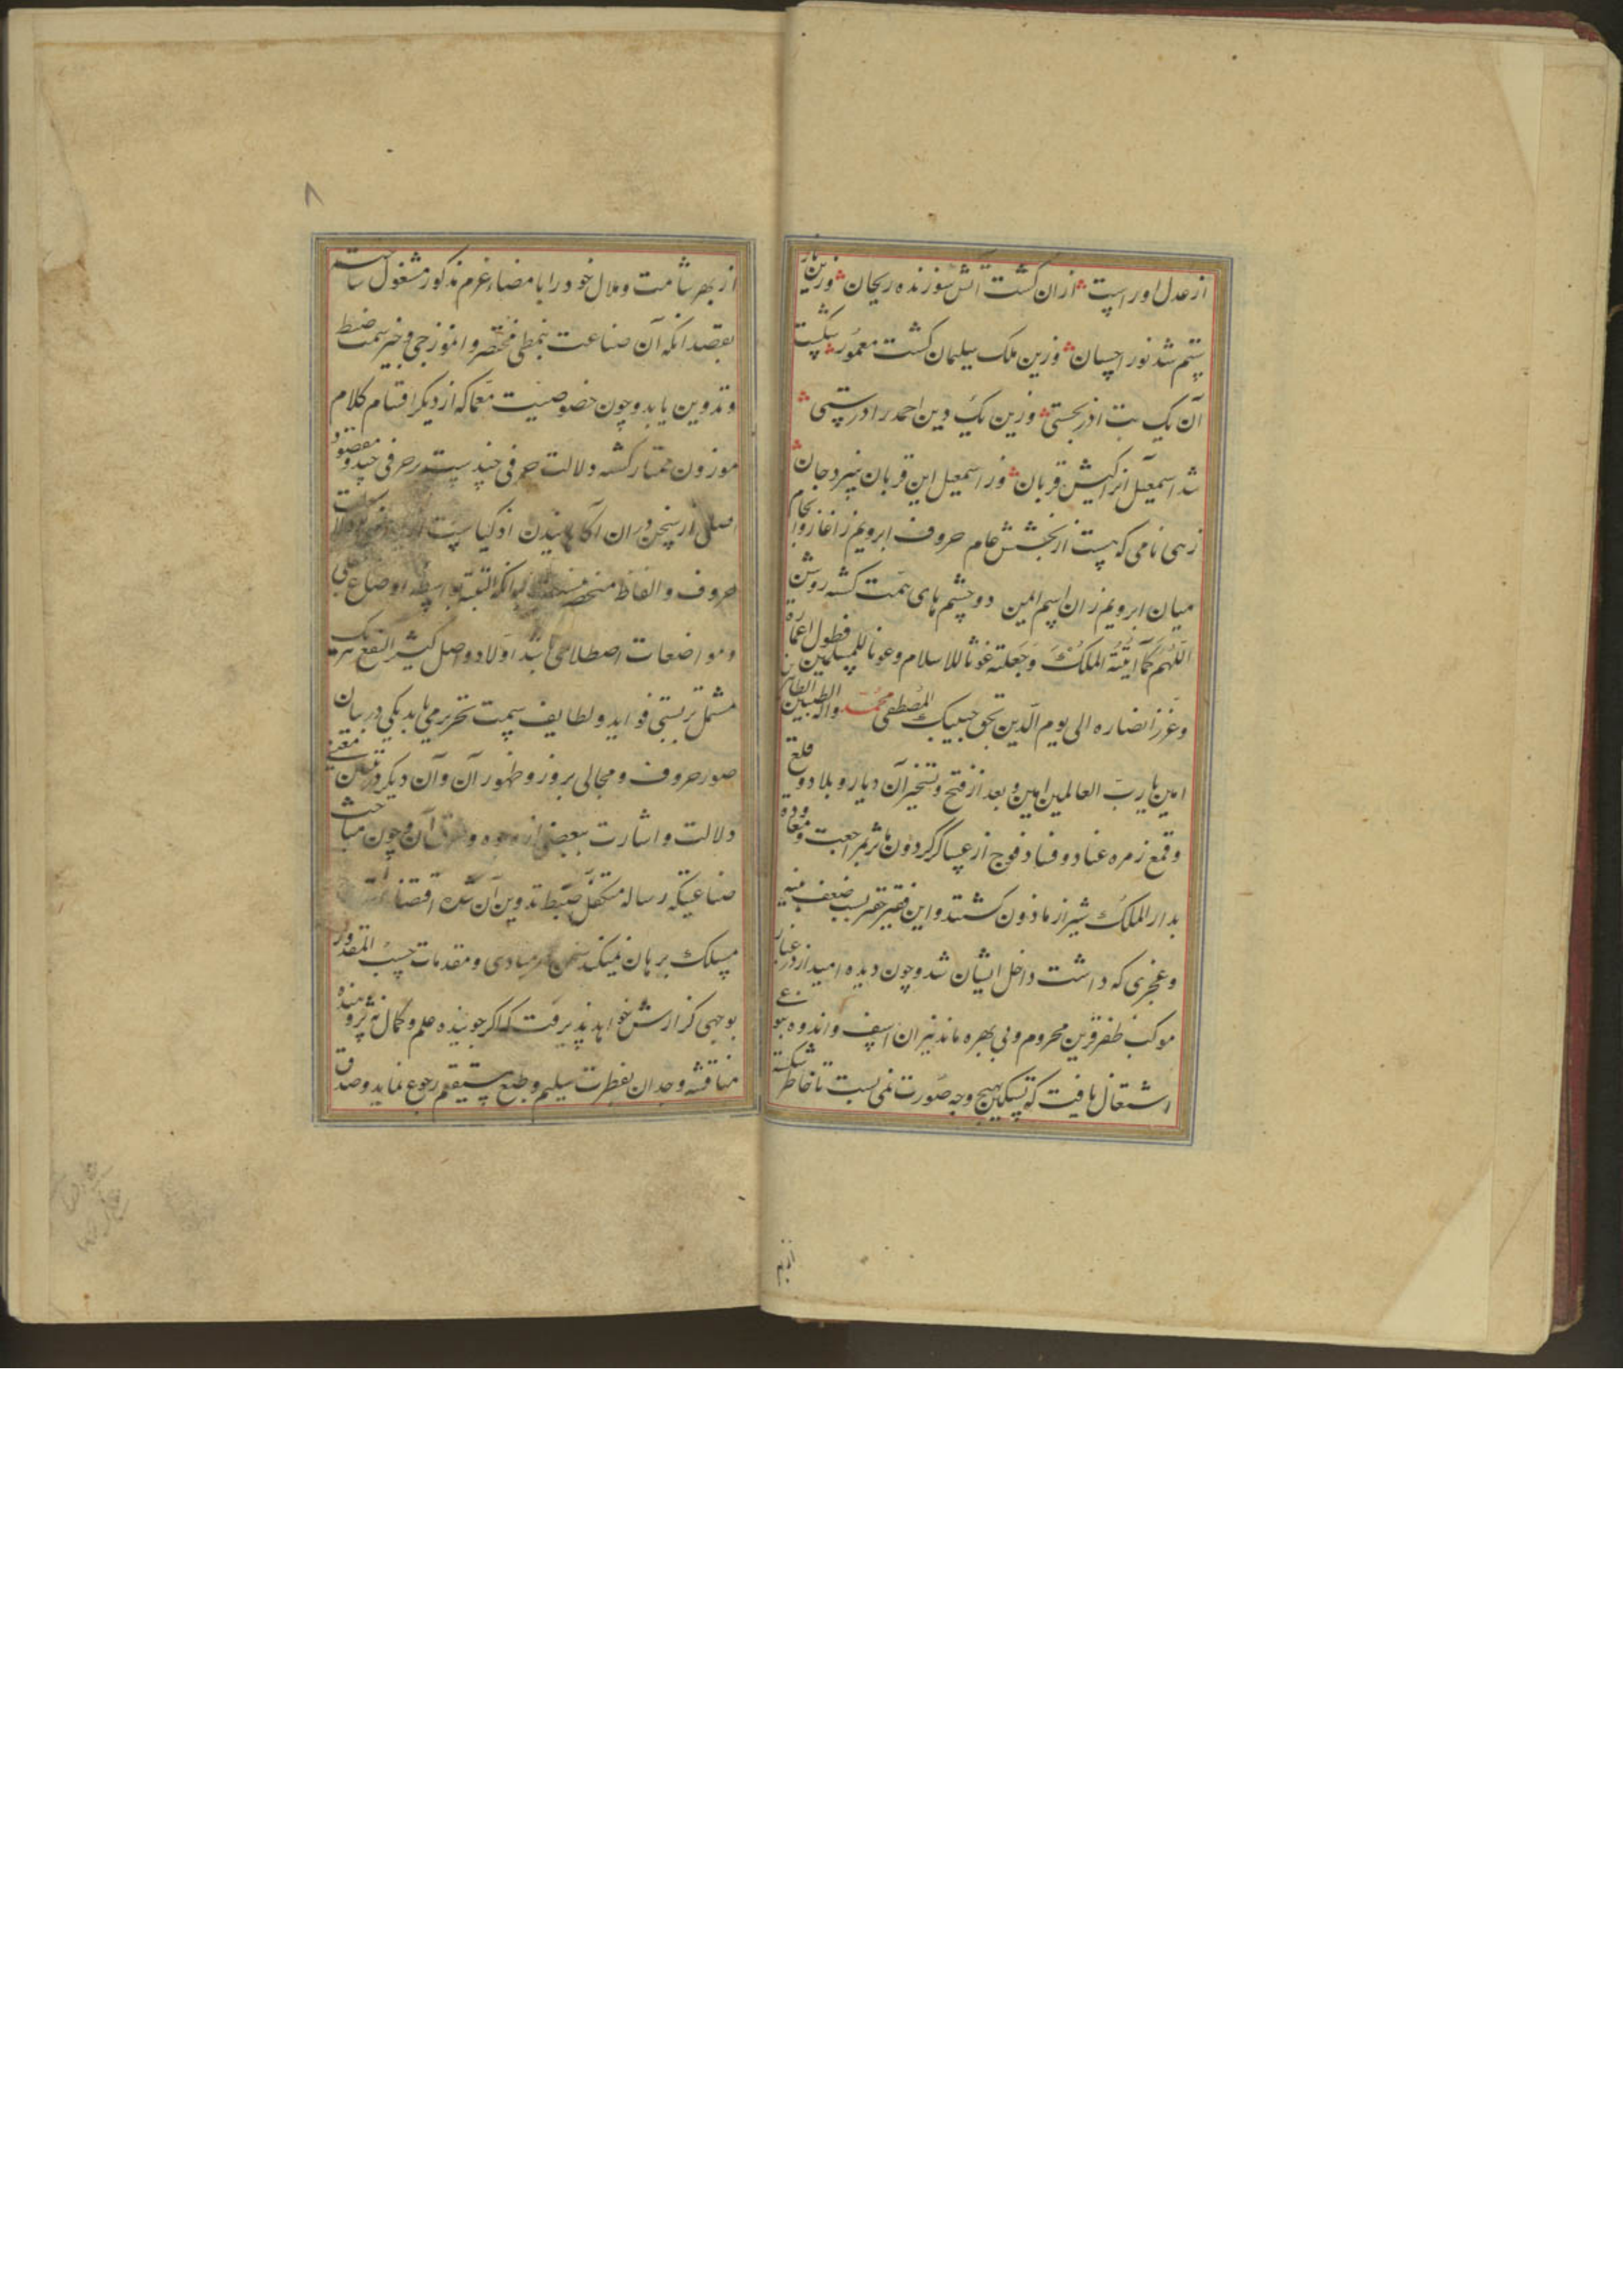 از عدل او راست ازان گشت آتش سوزنده ریحان وزین نار
ستم شد نور احسان وزین ملک سلیمان گشت معمور شکست
آن یک بت آذر بجستی وزین یک دین احمد را درستی
شد اسمعیل آنرا کیش قربان وز اسمعیل این قربان بپرد جان
زهی نامی که هست از بخشش عام حروف ابرویم ز اغاز و انجام
میان ابرویم زان اسم المین دو چشم های همت گشته روشن
اللهم کما آتیته الملک و جعلته غوثا للاسلام و عونا للمسلمین فطول اعماره
و عزز انصاره الی یوم الدین بحق حبیبک المصطفی محمد واله الطیبین الطاهرین
امین یا رب العالمین امین و بعد از فتح و تسخیر آن دیار و بلاد و قلع
و قمع زمره عناد و فساد فوج از عساکر گردون ماثر بمراجعت و معاوده
بدار الملک شیراز ماذون گشتند و این فقیر حقیر بسبب ضعف بنیه
و عجزی که داشت داخل ایشان شد و چون دیده امید از غبار
موکب ظفر قرین محروم و بی بهره ماند نیران اسف و اندوه بنوعی
اشتعال یافت که تسکین بهیچ وجه صورت نمی بست تا خاطر شکسته
ازبهر
۸
از بهر شامت و ملال خود را بامضاء عزم مذکور مشغول ساخت
بقصد انکه آن صناعت بنمطی مختصر و انموزجی وجیز سمت ضبط
و تدوین یابد و چون خصوصیت معما که از دیگر اقسام کلام
موزون ممتاز گشته دلالت حرفی چند است بر حرفی چند و مقصود
اصلی از سخن وران آگاهانیدن اذکیاست
حروف و الفاظ منحصر نیست البته بواسطه اوضاع علی
و مواضعات اصطلاحی باشد اولا دو اصل کثیر النفع هر یک
مشتمل بر بستی فواید و لطایف سمت تحریر می یابد یکی در بیان
صور حروف و مجالی بروز و ظهور آن و آن دیگر در تبیین معنی
دلالت و اشارت ببعضی از وجوه و آن و چون مباحث
صناعیتکه رساله متکفل ضبط تدوین آن شده اقتضا
مسلک برهان نمیکند مبادی و مقدمات حسب المقدور
بوجهی گزارش خواهد پذیرفت که اگر جوینده علم و کمال نه پژوهنده
مناقشه و جدان بفطرت سلیم و طبع مستقیم رجوع نماید و صدق